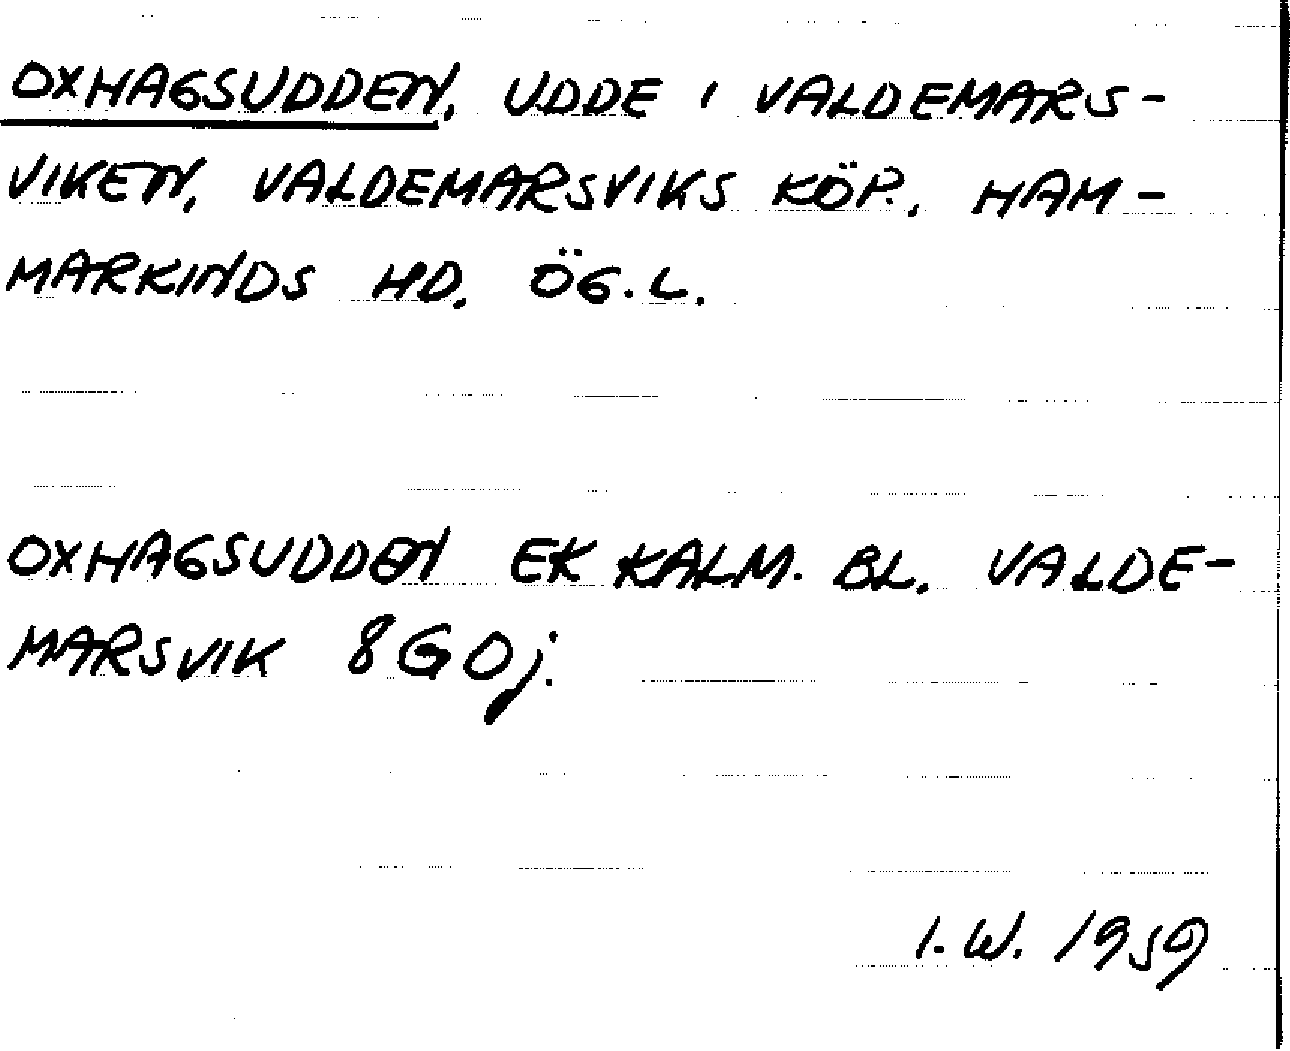 OXHAGSUDDEN, UDDE I VALDEMARS-
VIKEN, VALDEMARSVIKS KÖP., HAM-
MARKINDS HD. ÖG.L.
OXHAGSUDDEN EK KALM. BL. VALDE-
MARSVIK 8G0j.
I.W. 1959